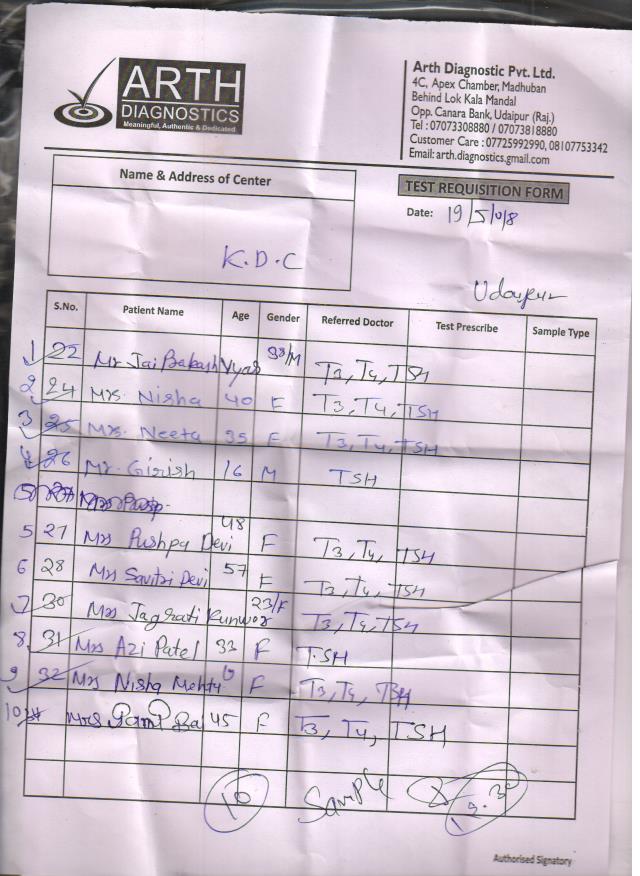 ARTH
DIAGNOSTICS
Meaningful, Authentic & Dedicated
Arth Diagnostic Pvt. Ltd.
4C, Apex Chamber, Madhuban
Behind Lok Kala Mandal
Opp. Canara Bank, Udaipur (Raj.)
Tel : 07073308880 / 07073818880
Customer Care : 07725992990, 08107753342
Email: arth.diagnostics.gmail.com
Name & Address of Center
TEST REQUISITION FORM
Date: 19/5/018
K.D.C
Udaipur
S.No. Patient Name Age Gender Referred Doctor Test Prescribe Sample Type
1 22 Mr Jai Bakash Vyas 38/M T3, T4, TSH
2 24 Mrs. Nisha 40 F T3, T4, TSH
3 25 Mrs. Neeta 35 F T3, T4, TSH
4 26 Mr. Girish 16 M TSH
5 27 Mrs Pushpa Devi 48 F T3, T4, TSH
6 28 Mrs Savitri Devi 57 F T3, T4, TSH
7 30 Mrs Jagrati Kunwor 23/F T3, T4, TSH
8 31 Mrs Azi Patel 33 F TSH
9 32 Mrs Nisha Mehta F T3, T4, TSH
10 Mrs Pami Ba 45 F T3, T4, TSH
10 Sample
Authorised Signatory